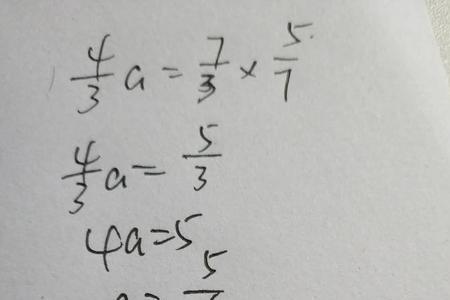 4/3 a = 7/3 × 5/7
4/3 a = 5/3
4a=5
a = 5/